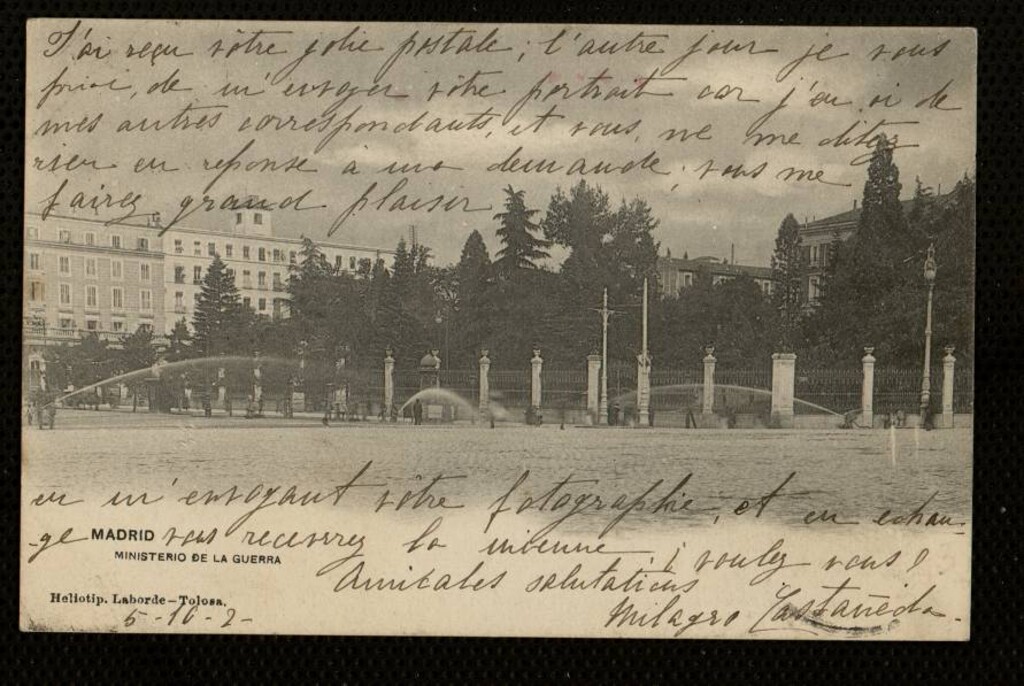 J'ai reçu vôtre jolie postale; l'autre jour je vous
priai, de m'envoyer vôtre portrait car j'en ai de
mes autres correspondants, et vous, ne me dites
rien en reponse à ma demande, vous me
fairez grand plaisir
en m'envoyant vôtre fotographie, et en echan-
-ge vous receverez la mienne ¿voulez vous?
MADRID
MINISTERIO DE LA GUERRA
Amicales salutations
Heliotip. Laborde-Tolosa.
Milagro Castañeda
5-10-2-